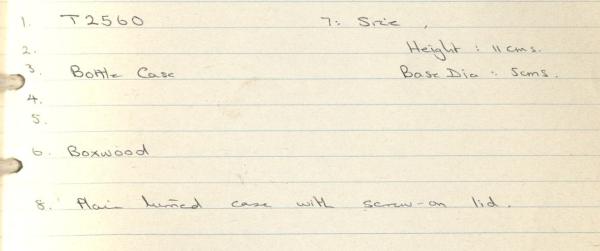 1. T2560 7: Size.
2. Height : 11 cms.
3. Bottle Case Base Dia : 5cms.
4.
5.
6. Boxwood
8. Plain turned case with screw-on lid.